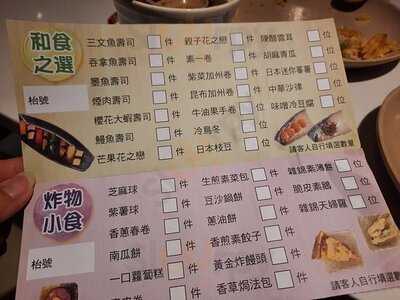 和食之選
枱號
三文魚壽司 件
吞拿魚壽司 件
墨魚壽司 件
煙肉壽司 件
櫻花大蝦壽司 件
鰻魚壽司 件
芒果花之戀 件
親子花之戀 件
素一卷 件
紫菜加州卷 件
昆布加州卷 件
牛油果手卷 件
冷烏冬 位
日本枝豆 位
陳醋雲耳 位
胡麻青瓜 位
日本迷你蕃薯 位
中華沙律 位
味噌冷豆腐 位
請客人自行填選數量
炸物小食
枱號
芝麻球 件
紫薯球 件
香蕉春卷 件
南瓜餅 件
一口蘿蔔糕 件
生煎素菜包 件
豆沙鍋餅 件
蔥油餅 件
香煎素餃子 件
黃金炸饅頭 件
香草焗法包 件
雜錦素薄餅
脆皮素鵝
雜錦天婦羅 位
請客人自行填選數